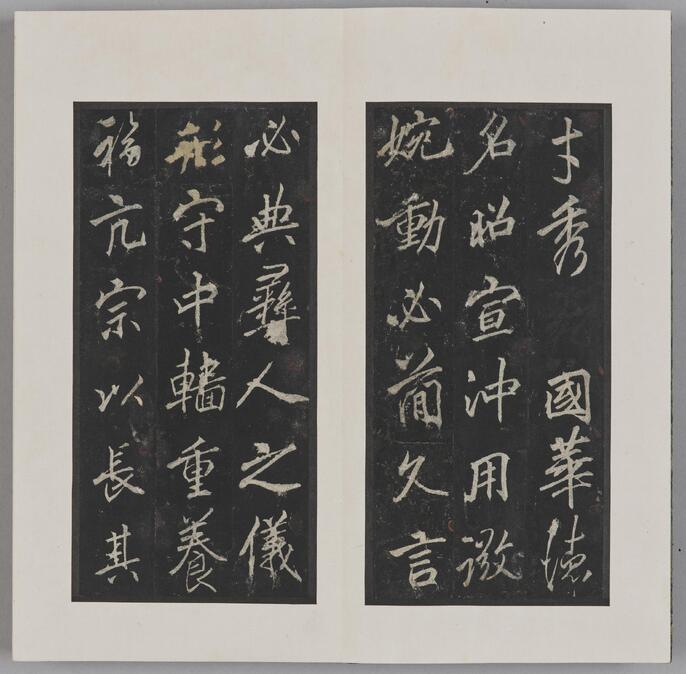 才秀 國華德
名昭宣沖用微
婉動必簡久言
必典彝人之儀
形守中轖重養
福亢宗以長其